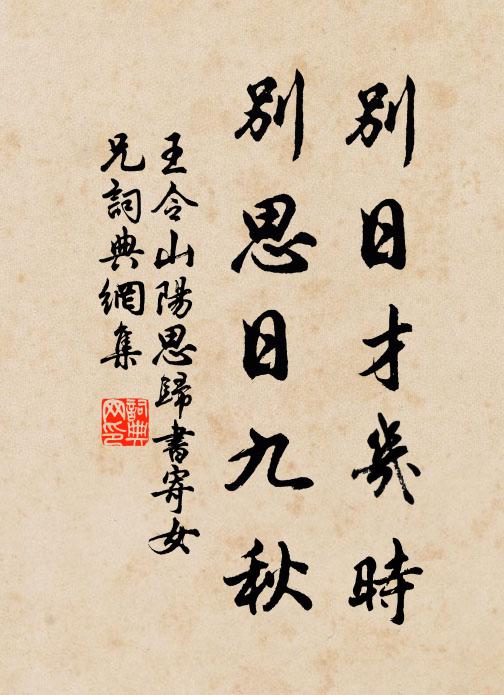 別日才幾時
別思日九秋
王令山陽思歸書寄女
兄詞典網集
詞典
网印